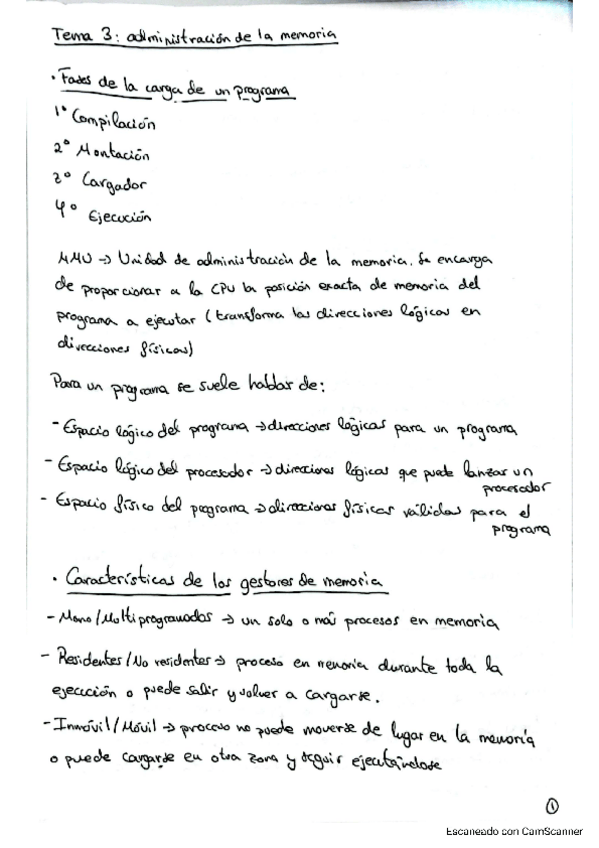 Tema 3: administración de la memoria
· Fases de la carga de un programa
1º Compilación
2º Montación
3º Cargador
4º Ejecución
MMU -> Unidad de administración de la memoria. Se encarga
de proporcionar a la CPU la posición exacta de memoria del
programa a ejecutar (transforma las direcciones lógicas en
direcciones físicas)
Para un programa se suele hablar de:
- Espacio lógico del programa -> direcciones lógicas para un programa
- Espacio lógico del procesador -> direcciones lógicas que puede lanzar un
procesador
- Espacio físico del programa -> direcciones físicas válidas para el
programa
· Características de los gestores de memoria
- Mono/Multiprogramados -> un solo o más procesos en memoria
- Residentes/No residentes -> proceso en memoria durante toda la
ejecución o puede salir y volver a cargarse.
- Inmóvil/Móvil -> proceso no puede moverse de lugar en la memoria
o puede cargarse en otra zona y seguir ejecutándose
1
Escaneado con CamScanner